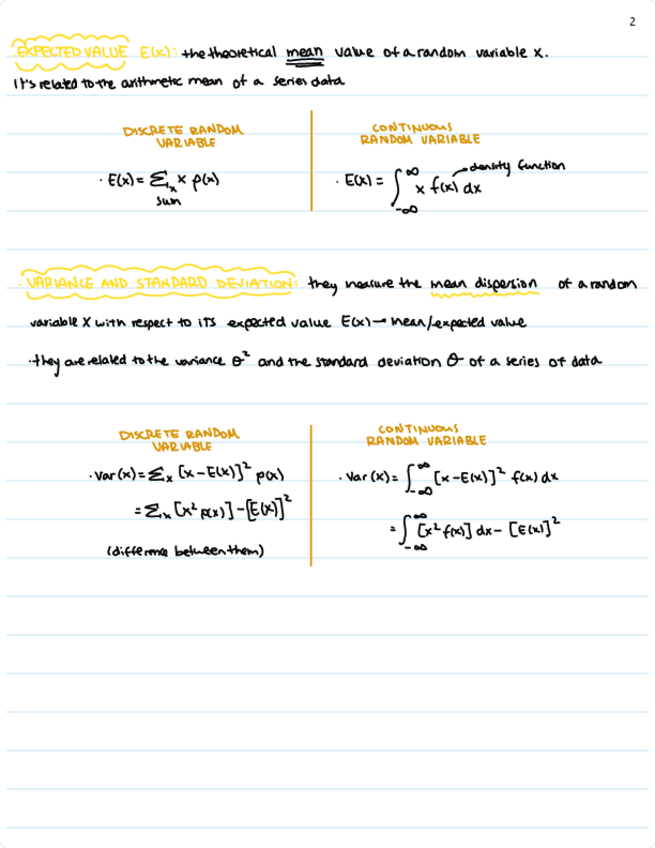 2
EXPECTED VALUE E(x): the theoretical mean value of a random variable x.
It's related to the arithmetic mean of a series data
DISCRETE RANDOM
VARIABLE
· E(x) = Σx x p(x)
sum
CONTINUOUS
RANDOM VARIABLE
density function
· E(x) = ∫_{-∞}^{∞} x f(x) dx
· VARIANCE AND STANDARD DEVIATION: they measure the mean dispersion of a random
variable X with respect to its expected value E(x) → mean/expected value
· they are related to the variance θ² and the standard deviation θ of a series of data
DISCRETE RANDOM
VARIABLE
· Var(x) = Σx [x - E(x)]² p(x)
= Σx [x² p(x)] - [E(x)]²
(difference between them)
CONTINUOUS
RANDOM VARIABLE
· Var(x) = ∫_{-∞}^{∞} [x - E(x)]² f(x) dx
= ∫_{-∞}^{∞} [x² f(x)] dx - [E(x)]²